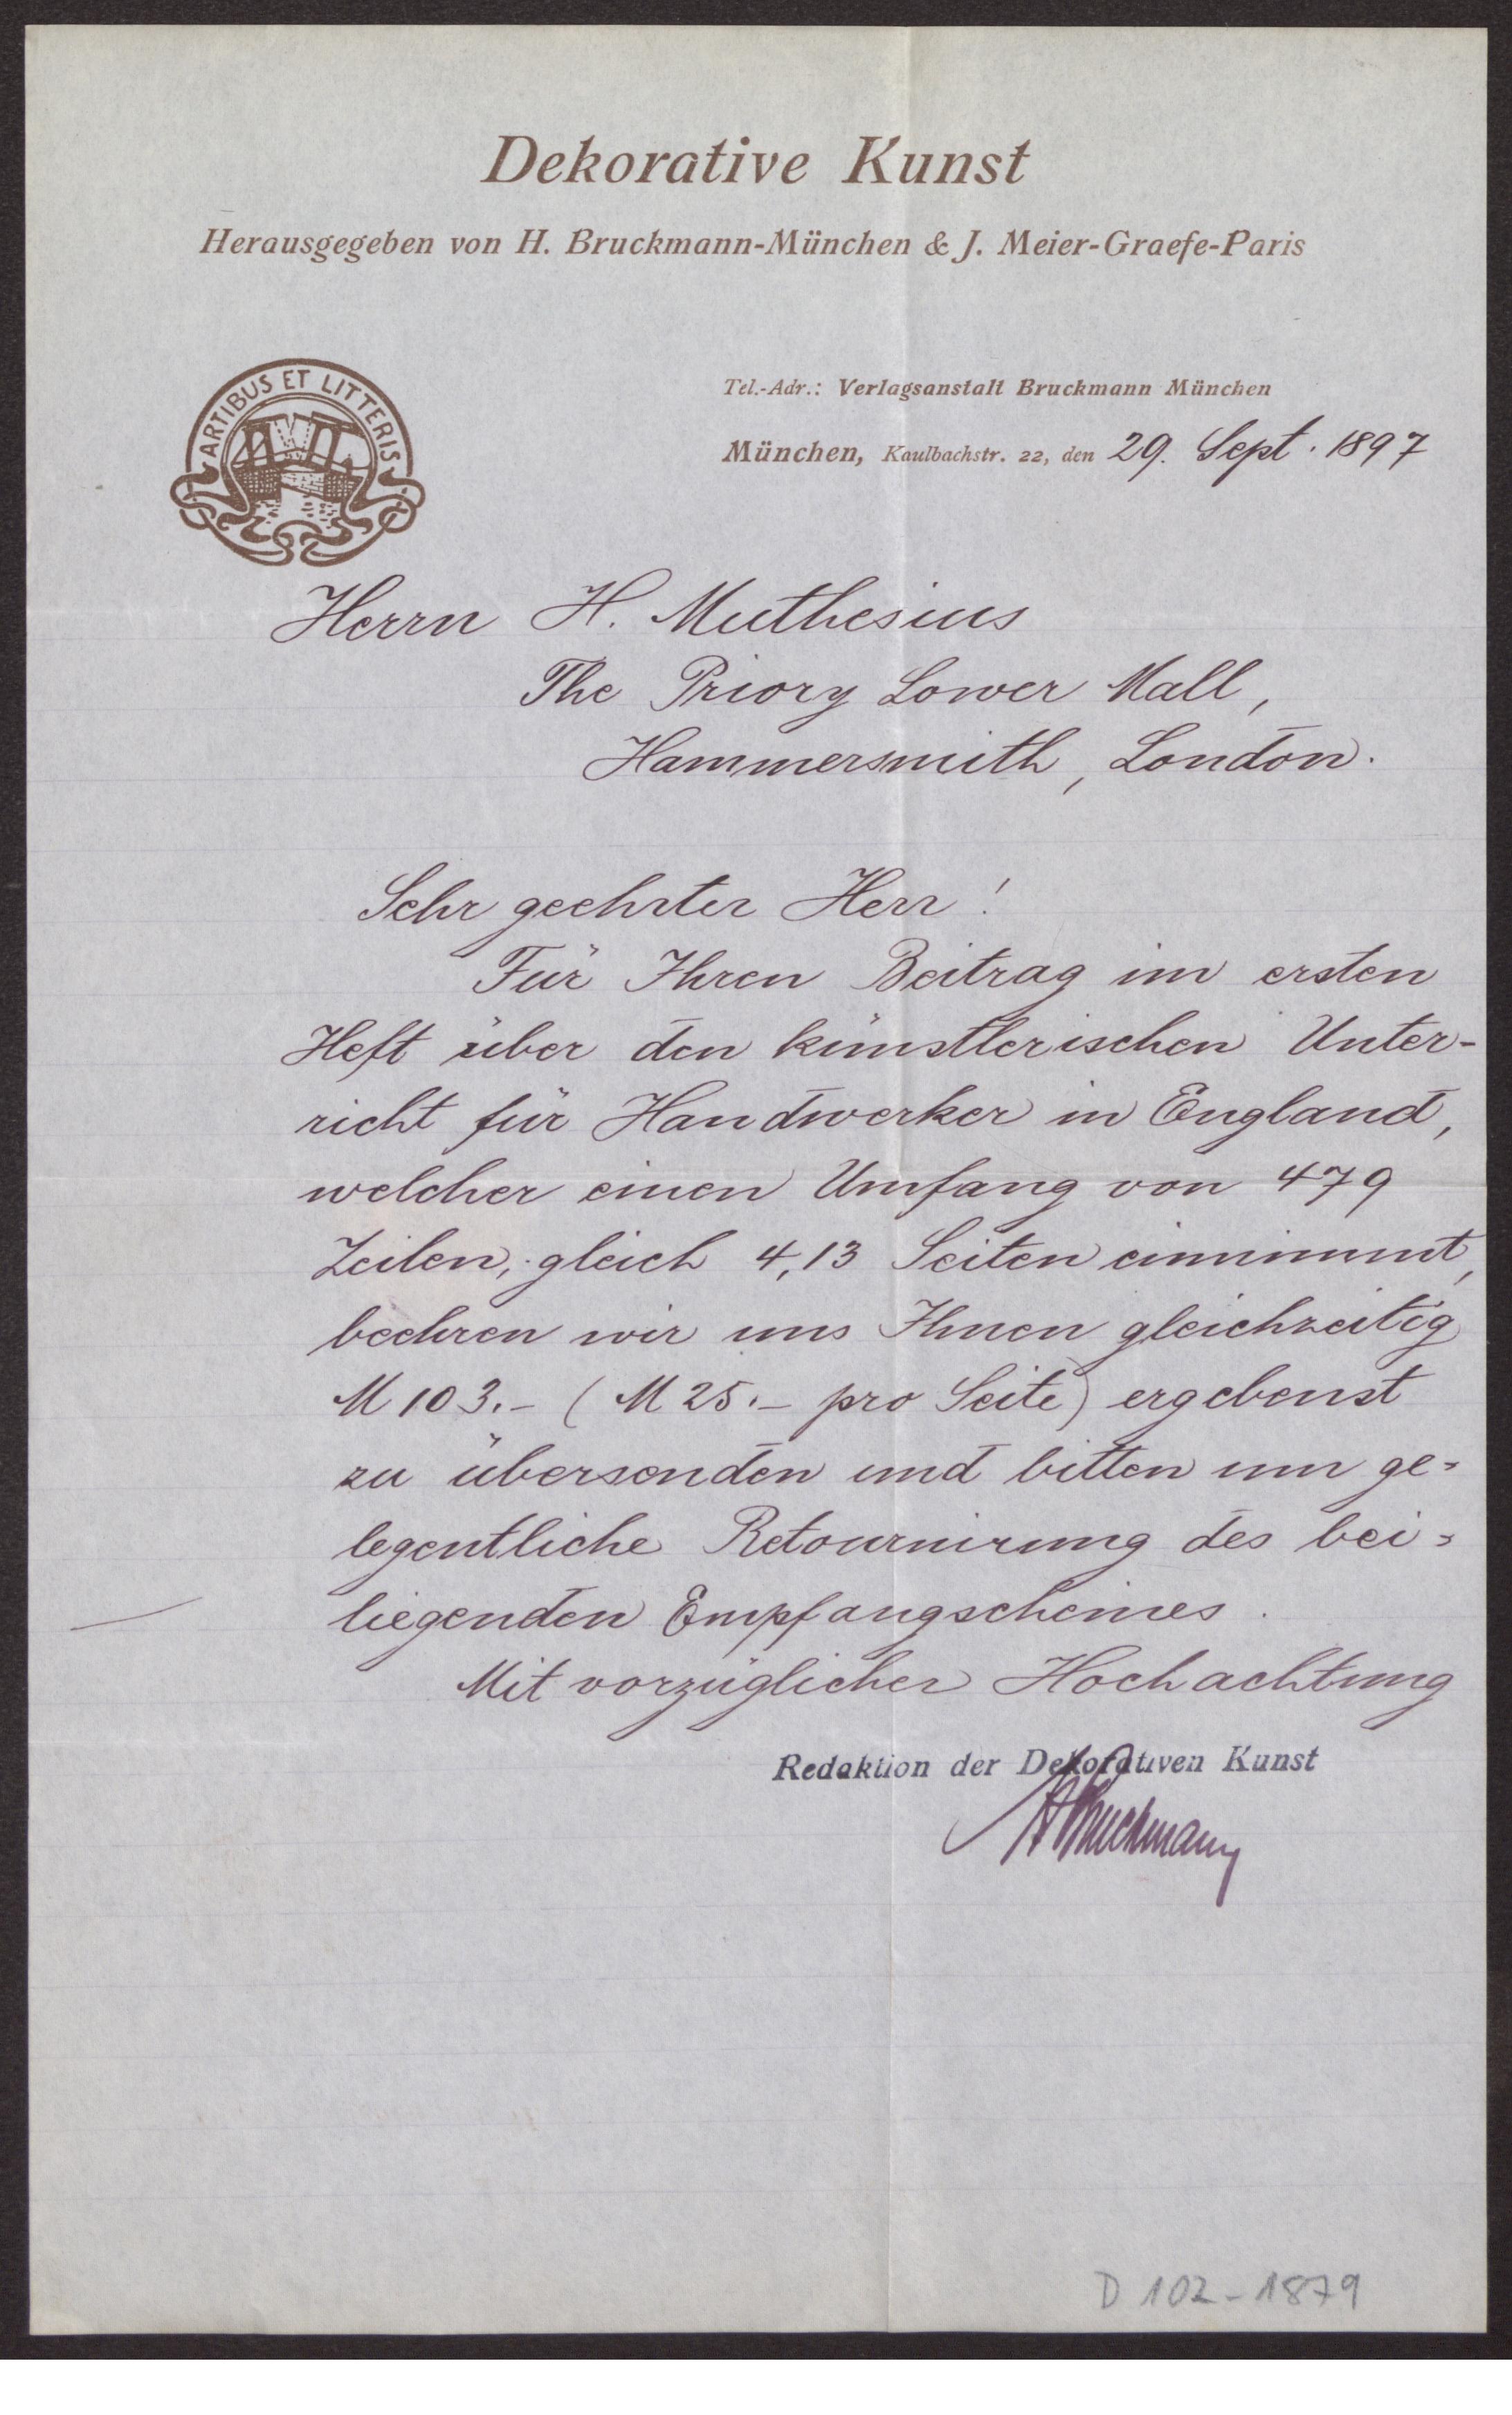 Dekorative Kunst
Herausgegeben von H. Bruckmann-München & J. Meier-Graefe-Paris
ARTIBUS ET LITTERIS
Tel.-Adr.: Verlagsanstalt Bruckmann München
München, Kaulbachstr. 22, den 29. Sept. 1897
Herrn H. Muthesius
The Priory Lower Mall,
Hammersmith, London.
Sehr geehrter Herr!
Für Ihren Beitrag im ersten
Heft über den künstlerischen Unter-
richt für Handwerker in England,
welcher einen Umfang von 479
Zeilen, gleich 4,13 Seiten einnimmt,
beehren wir uns Ihnen gleichzeitig
M 103.- (M 25.- pro Seite) ergebenst
zu übersenden und bitten um ge-
legentliche Retournirung des bei-
liegenden Empfangscheines.
Mit vorzüglicher Hochachtung
Redaktion der Dekorativen Kunst
HBruckmann
D 102-1879